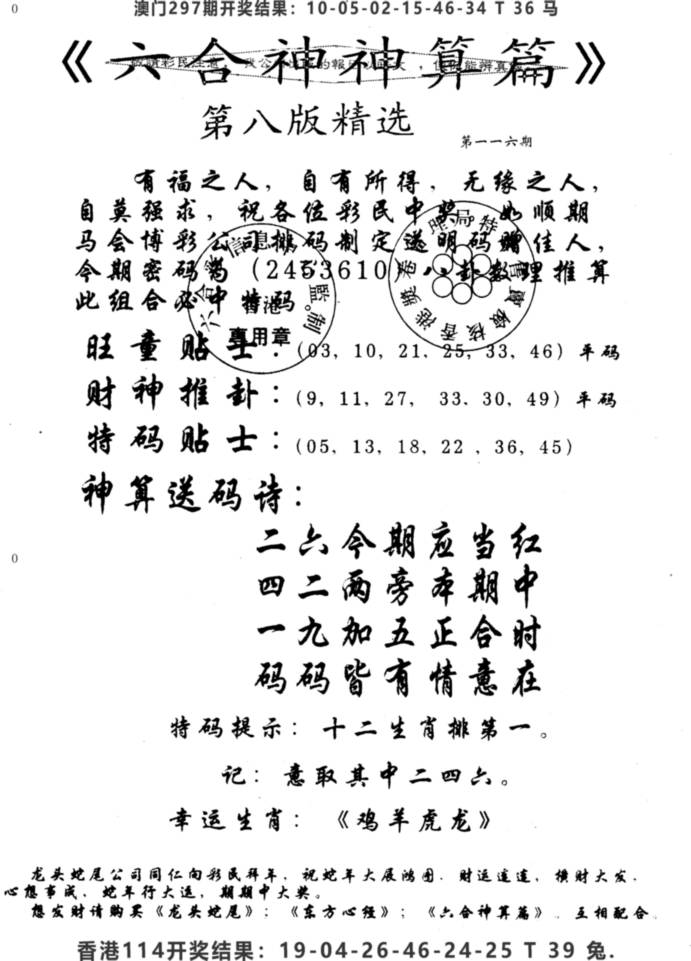 0
澳门297期开奖结果：10-05-02-15-46-34 T 36 马
《六合神神算篇》
第八版精选
第一一六期
有福之人，自有所得，无缘之人，
自莫强求，祝各位彩民中奖，如顺期
马会博彩公司排码制定送明码赠佳人，
今期密码为（2453610）八卦数理推算
此组合必中特码
專用章
旺童贴士：(03, 10, 21, 25, 33, 46) 平码
财神推卦：(9, 11, 27, 33. 30, 49) 平码
特码贴士：(05, 13, 18, 22 , 36, 45)
神算送码诗：
二六今期应当红
0
四二两旁本期中
一九加五正合时
码码皆有情意在
特码提示：十二生肖排第一。
记：意取其中二四六。
幸运生肖：《鸡羊虎龙》
龙头蛇尾公司同仁向彩民拜年，祝蛇年大展鸿图．财运连连，横财大发．
心想事成．蛇年行大运，期期中大奖。
想发财请购买《龙头蛇尾》；《东方心经》；《六合神算篇》．互相配合．
香港114开奖结果：19-04-26-46-24-25 T 39 兔.